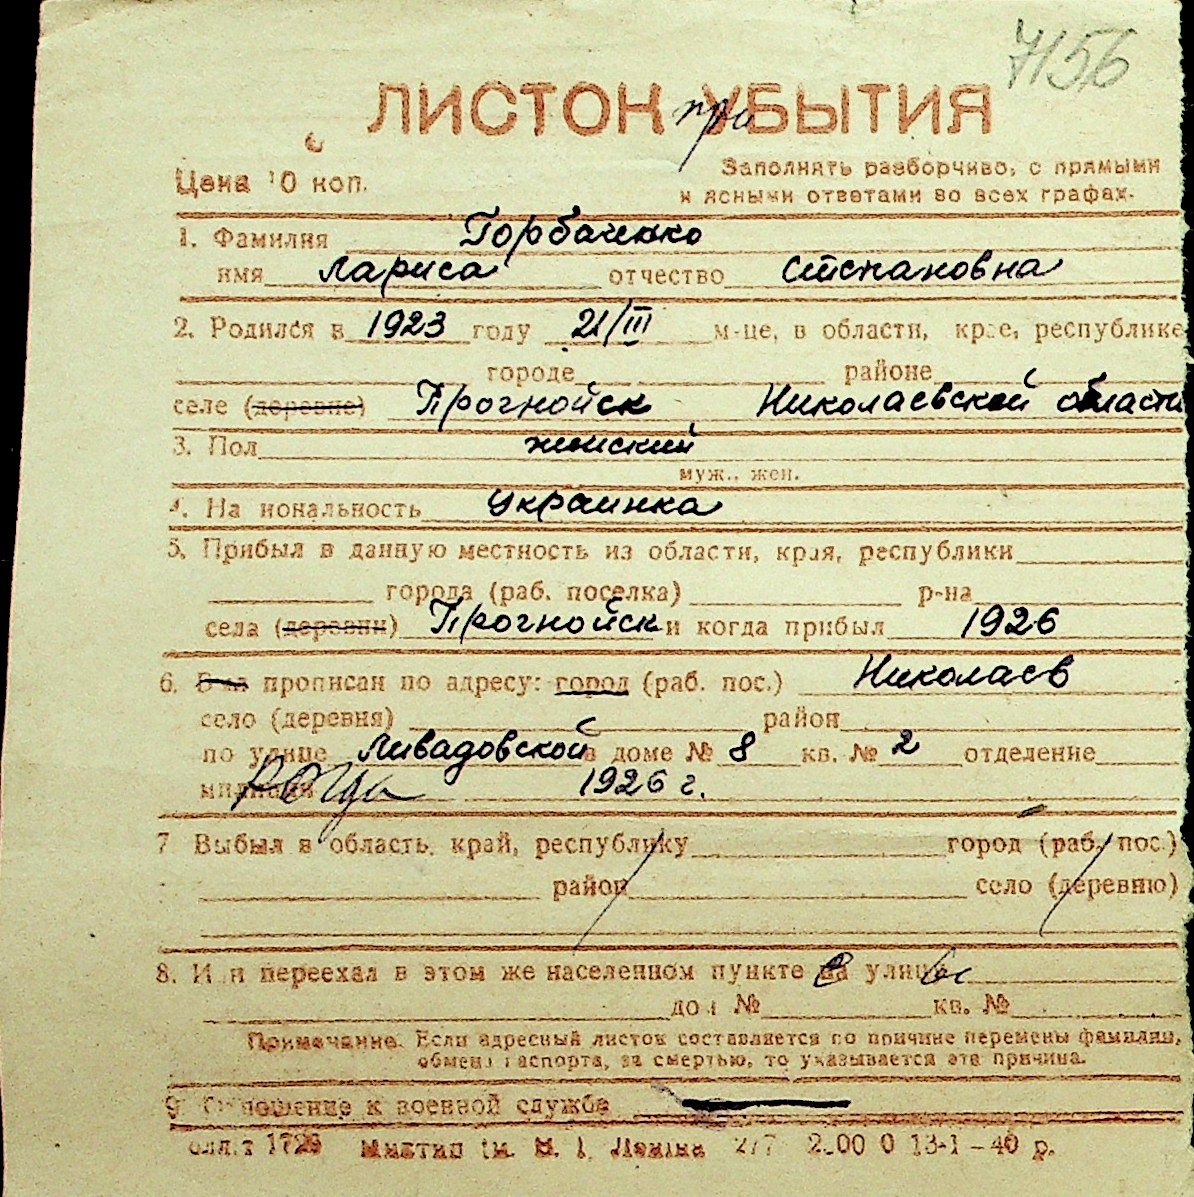 7156
ЛИСТОК при УБЫТИЯ
Цена 10 коп.
Заполнять разборчиво, с прямыми
и ясными ответами во всех графах.
1. Фамилия Горбаченко
имя Лариса отчество Степановна
2. Родился в 1923 году 21/III м-це, в области, крае, республике
городе районе
селе (деревне) Прогнойск Николаевской области
3. Пол женский
муж., жен.
4. Национальность украинка
5. Прибыл в данную местность из области, края, республики
города (раб. поселка) р-на
села (деревни) Прогнойск и когда прибыл 1926
6. прописан по адресу: город (раб. пос.) Николаев
село (деревня) район
по улице Ливадовской в доме № 8 кв. № 2 отделение
милиции когда 1926 г.
7 Выбыл в область, край, республику город (раб. пос.)
район село (деревню)
8. Или переехал в этом же населенном пункте на улицу
дом № кв. №
Примечание. Если адресный листок составляется по причине перемены фамилии,
обмена паспорта, за смертью, то указывается эта причина.
9. Отношение к военной службе
1726 им. В. И. Ленина 2.00 0 13-1-40 р.